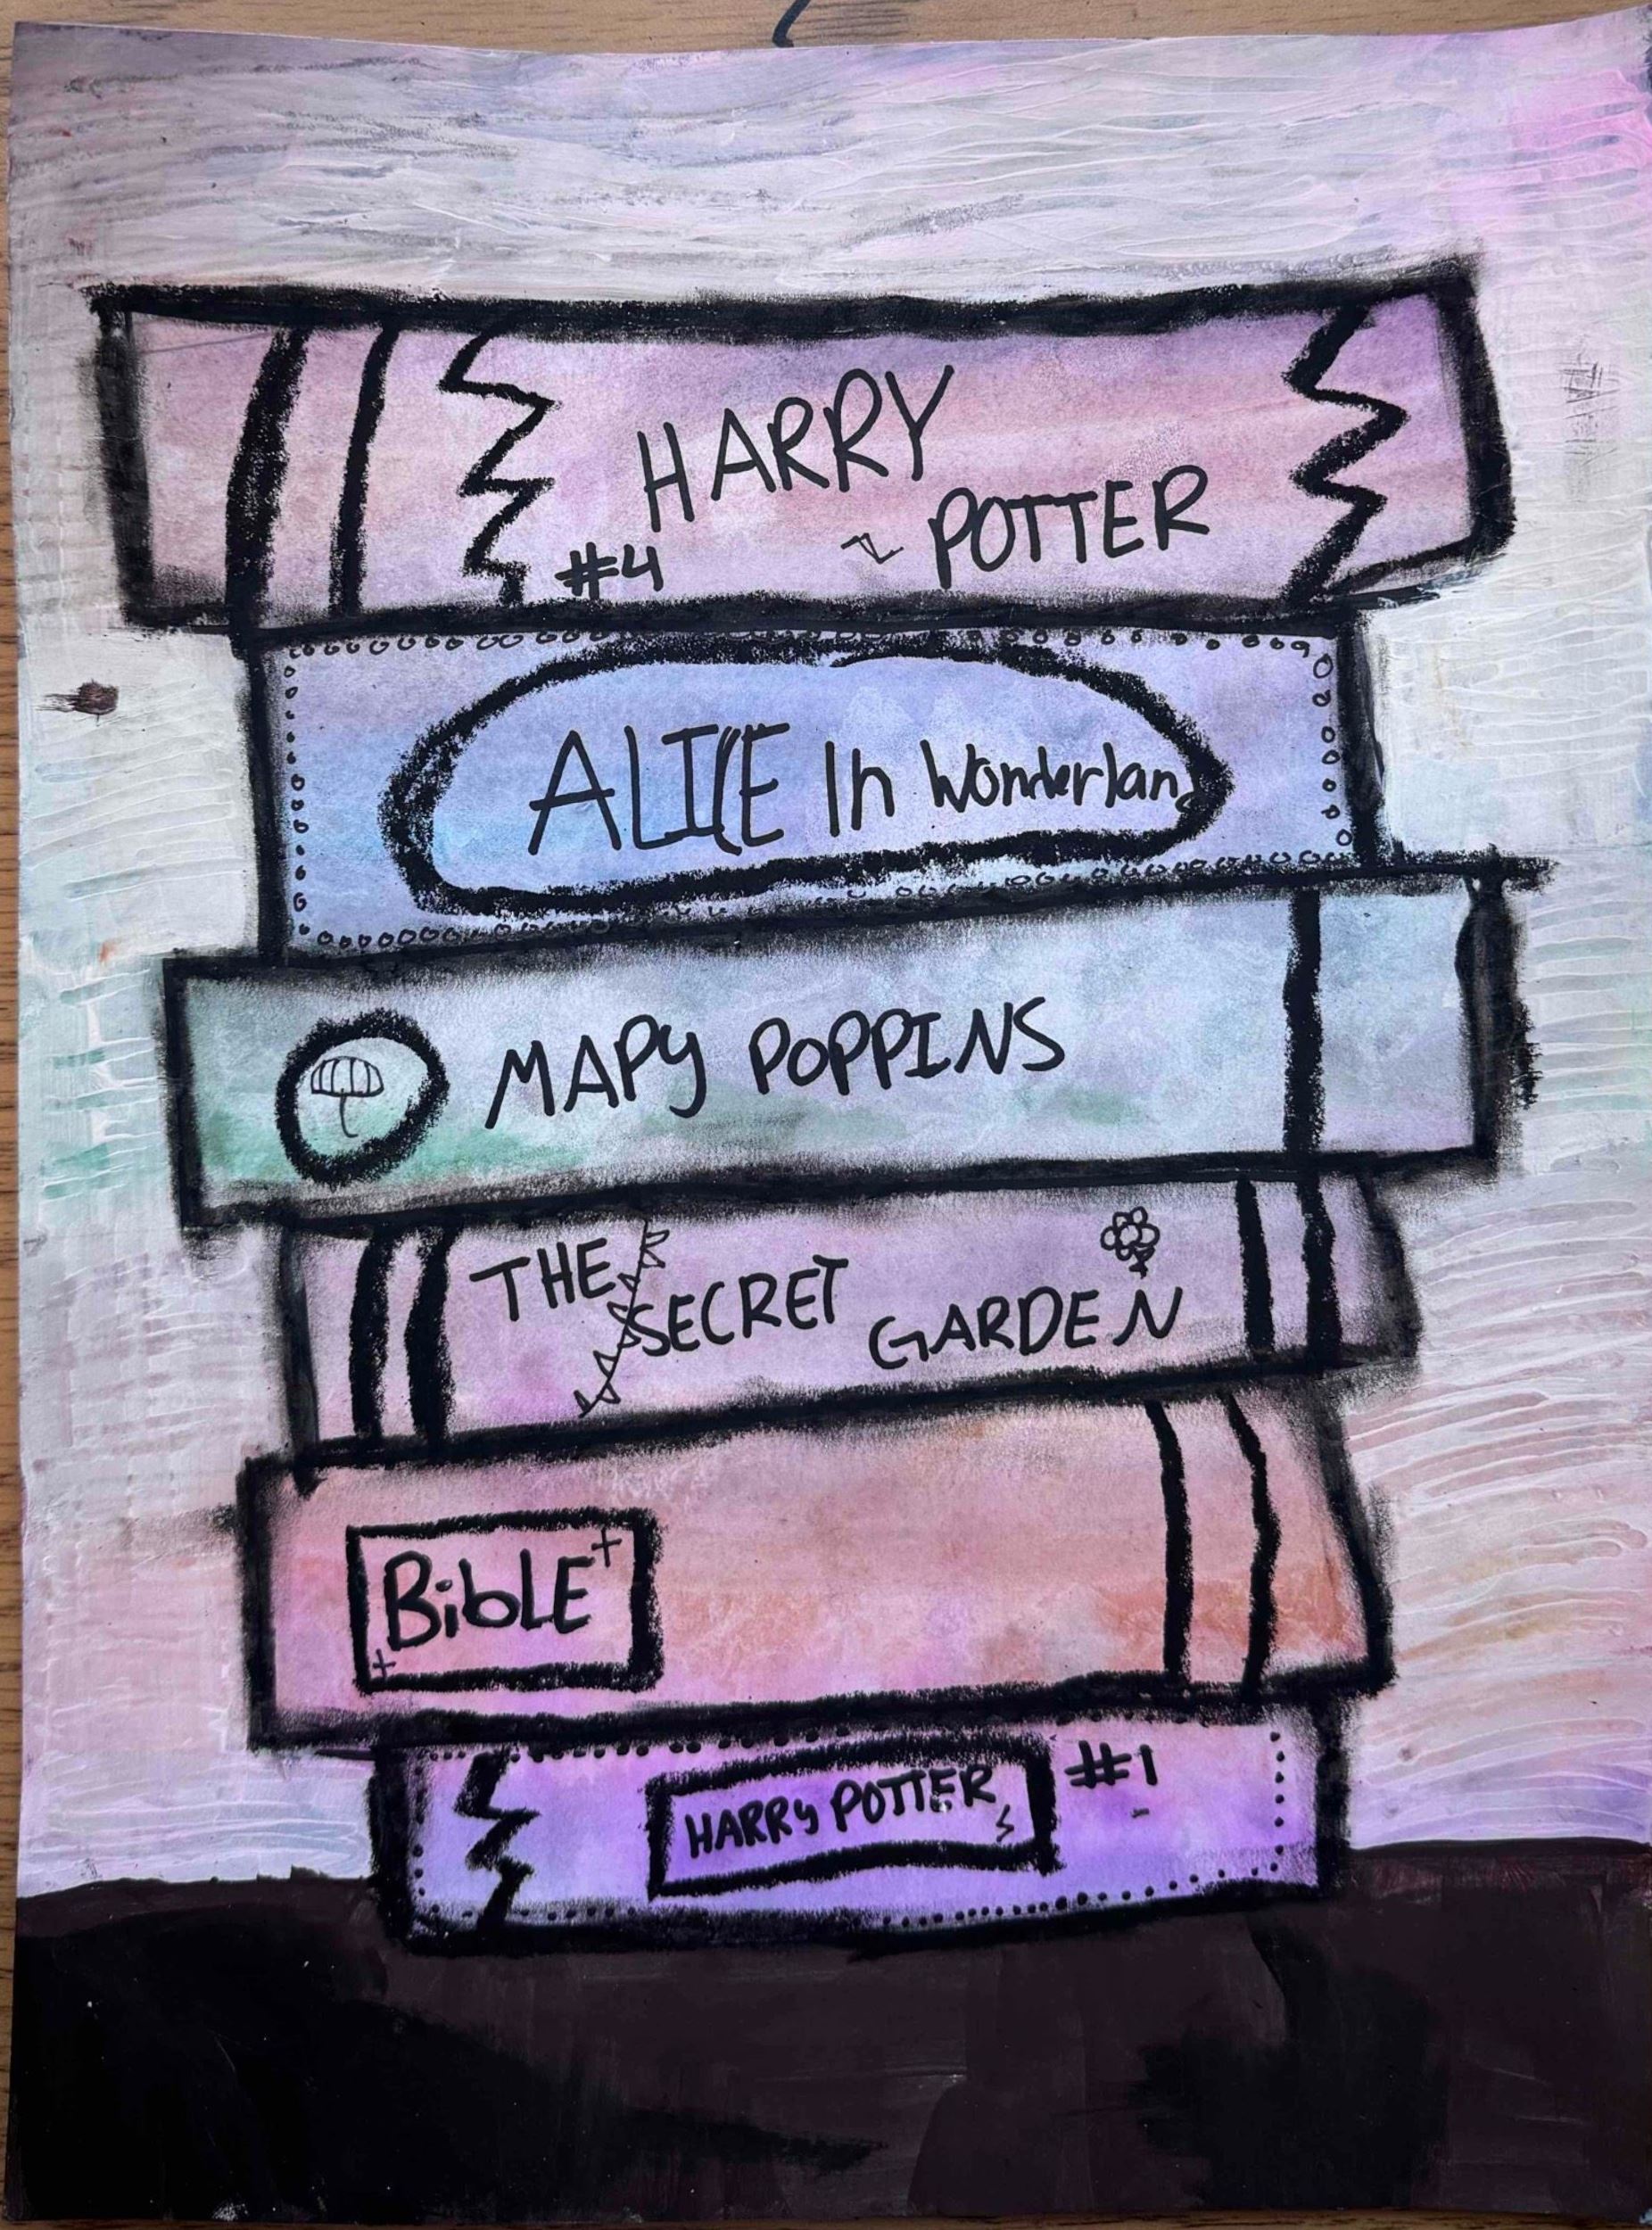 HARRY
POTTER
#4
ALICE In Wonderland
MAPY POPPINS
THE SECRET GARDEN
BibLE
HARRy POTTER #1